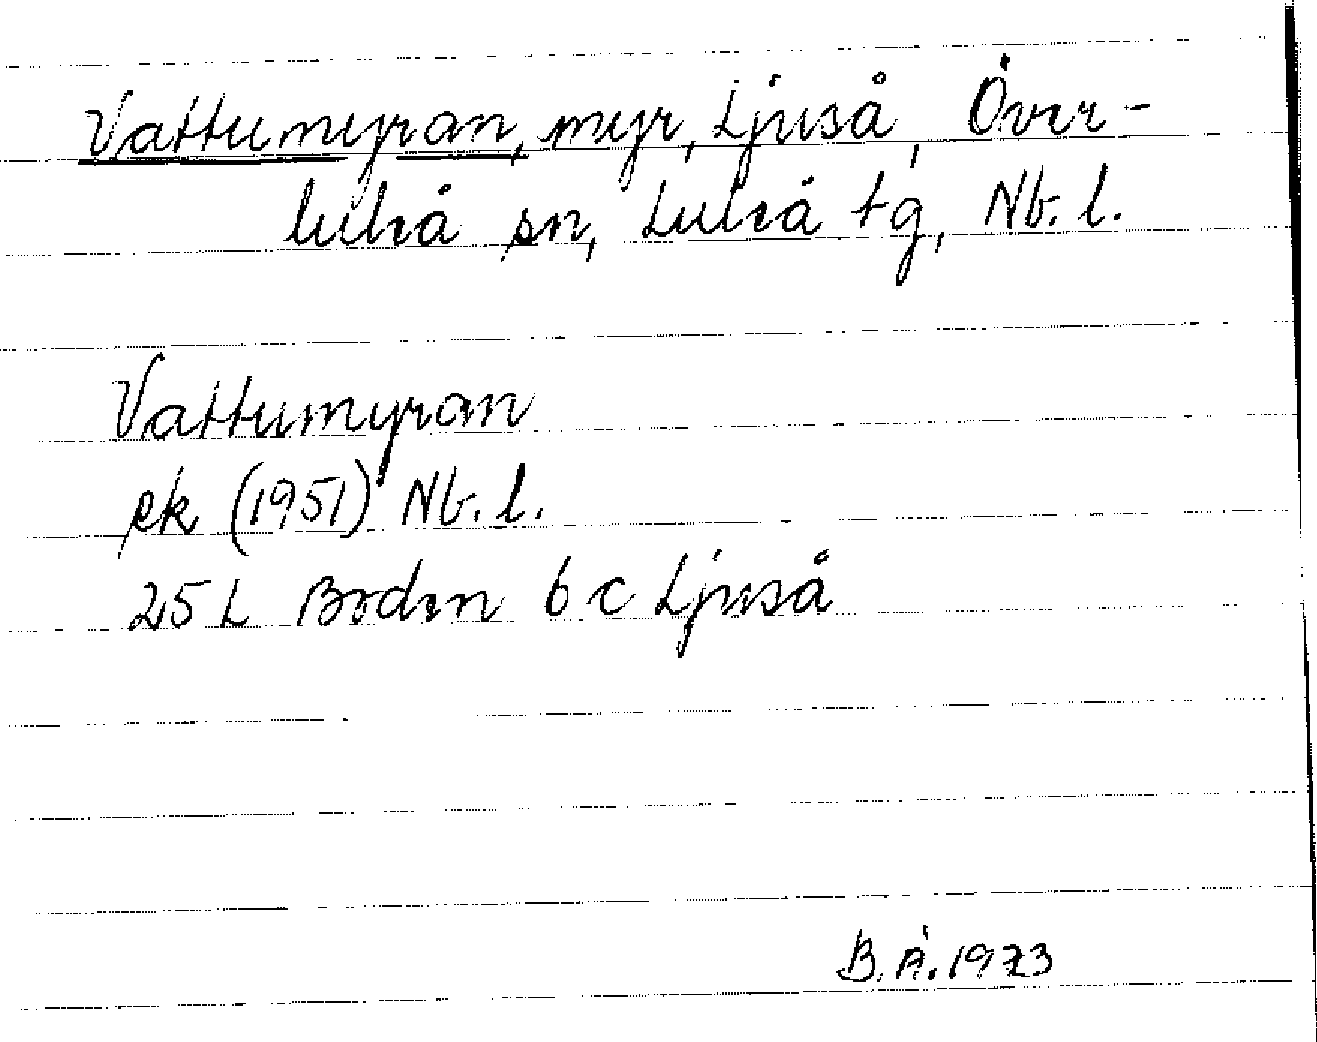 Vattumyran, myr, Ljuså, Över-
luleå sn, Luleå tg, Nb. l.
Vattumyran
ek (1951) Nb. l.
25 L Boden 6 c Ljuså
B.Å. 1973